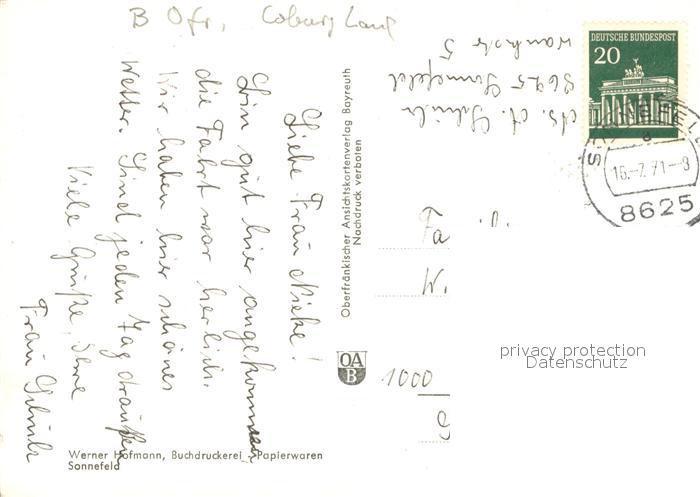 B Ofr, Coburg Land
DEUTSCHE BUNDESPOST
20
8625 Sonnefeld
5
16.-7.71-8
8625
Liebe Frau Nieke!
Bin gut hier angekommen
die Fahrt war herlich.
Wir haben hier schönes
Wetter. Sind jeden Tag draußen
Viele Grüße, Ihre
Frau
Oberfränkischer Ansichtskartenverlag Bayreuth
Nachdruck verboten
Fa
OA
B
1000
privacy protection
Datenschutz
Werner Hofmann, Buchdruckerei - Papierwaren
Sonnefeld